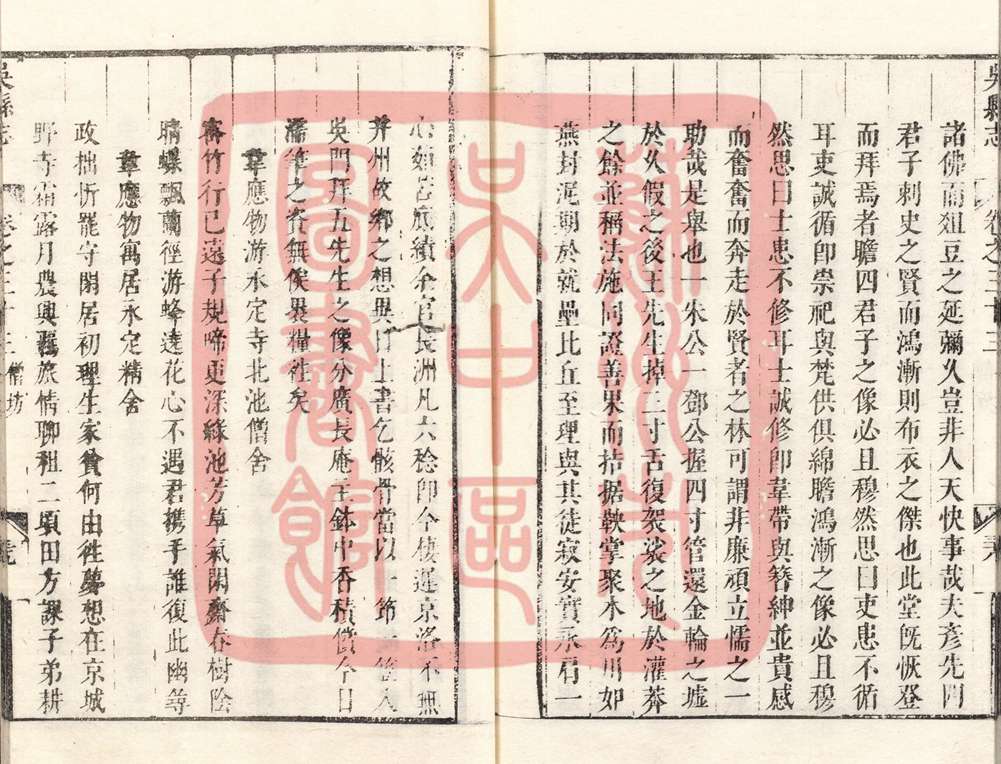 吳縣志
卷之三十三
諸佛而俎豆之延彌久豈非人天快事哉夫彥先四
君子刺史之賢而鴻漸則布衣之傑也此堂旣恢登
而拜焉者瞻四君子之像必且穆然思曰吏患不循
耳吏誠循卽崇祀與梵供俱綿瞻鴻漸之像必且穆
然思曰士患不修耳士誠修卽韋帶與簪紳並貴感
而奮奮而奔走於賢者之林可謂非廉頑立懦之一
助哉是舉也一朱公一鄧公握四寸管還金輪之墟
於久假之後王先生掉三寸舌復袈裟之地於灌莽
之餘並稱法施同證善果而拮据鞅掌聚木爲川如
燕封泥朝於就壘比丘至理與其徒寂安實永肩一
心頗苦旅績余官長洲凡六稔卽今棲遲京洛不無
幷州故鄉之想異日上書乞骸骨當以一笻一笠入
吳門拜五先生之像分廣長庵主鉢中香積償今日
濡筆之資無俟裹糧往矣
韋應物游永定寺北池僧舍
密竹行已遠子規啼更深綠池芳草氣閑齋春樹陰
晴蝶飄蘭徑游蜂遶花心不遇君攜手誰復此幽尋
韋應物寓居永定精舍
政拙忻罷守閑居初理生家貧何由往夢想在京城
野寺霜露月農興羈旅情聊租二頃田方課子弟耕
吳縣志
卷之三十三
僧坊
蘇州市
吳中區
圖書館